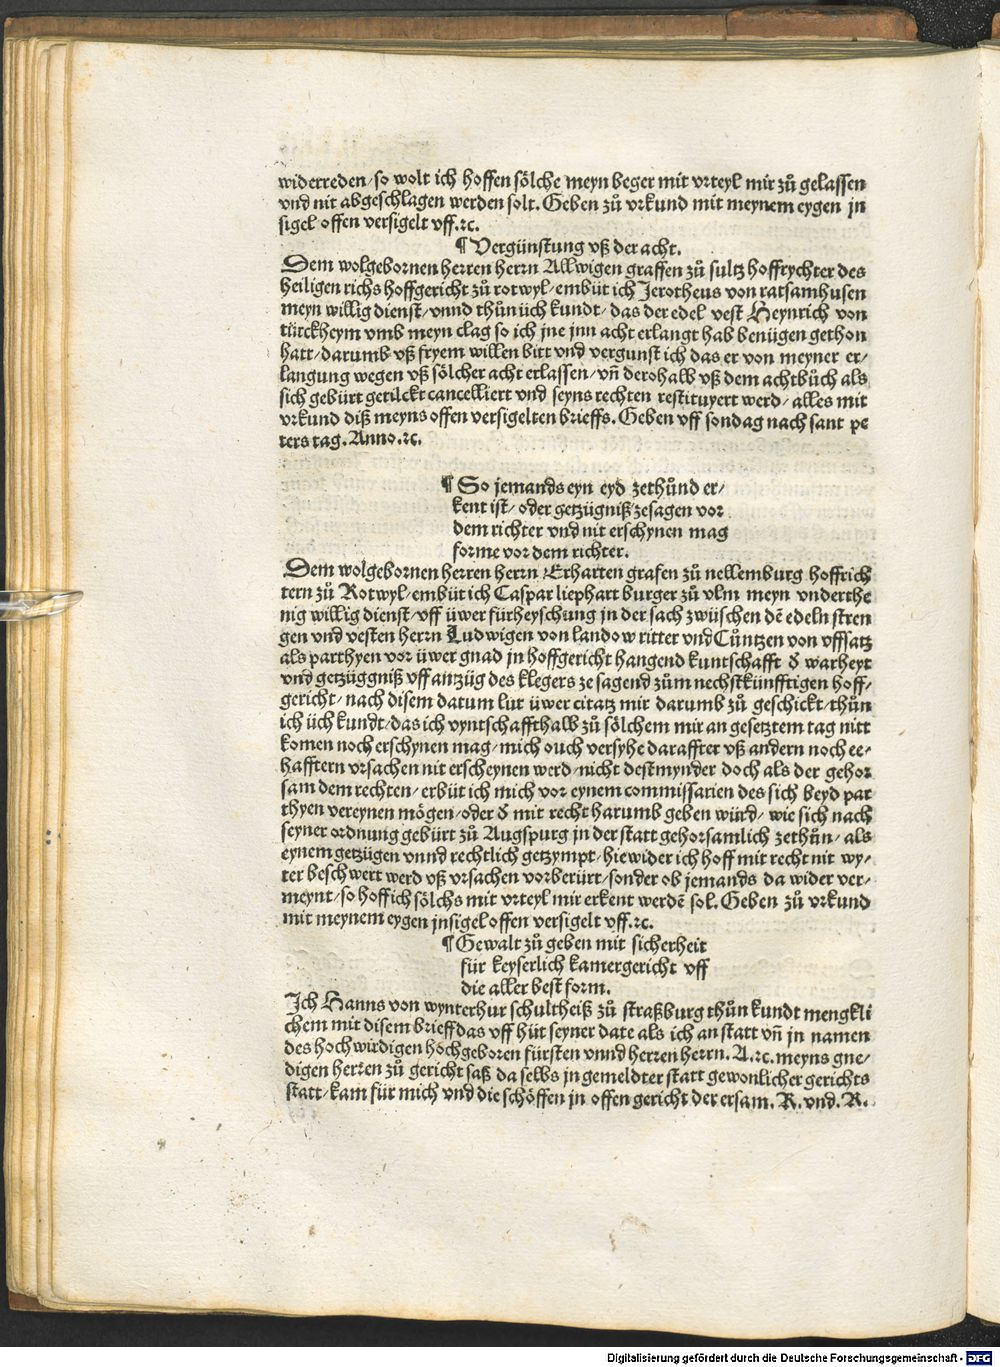 widerreden/ so wolt ich hoffen sölche meyn beger mit vrteyl mir zů gelassen
vnd nit abgeschlagen werden solt. Geben zů vrkund mit meynem eygen jn
sigel offen versigelt vff.ꝛc.
¶ Vergünstung vß der acht.
Dem wolgebornen herren herrn Allwigen graffen zů sultz hoffrychter des
heiligen richs hoffgericht zů rotwyl/ embüt ich Jerotheus von ratsamhusen
meyn willig dienst/ vnnd thůn üch kundt/ das der edel vest Heynrich von
türckheym vmb meyn clag so ich jne jnn acht erlangt hab benügen gethon
hatt/ darumb vß fryem willen bitt vnd vergunst ich das er von meyner er/
langung wegen vß sölcher acht erlassen/ vñ derohalb vß dem achtbůch als
sich gebürt getilckt cancelliert vnd seyns rechten restituyert werd/ alles mit
vrkund diß meyns offen versigelten brieffs. Geben vff sondag nach sant pe
ters tag. Anno.ꝛc.
¶ So jemands eyn eyd zethůnd er/
kent ist/ oder getzügniß zesagen vor
dem richter vnd nit erschynen mag
forme vor dem richter.
Dem wolgebornen herren herrn Erharten grafen zů nellemburg hoffrich
tern zů Rotwyl/ embüt ich Caspar liephart burger zů vlm meyn vnderthe
nig willig dienst/ vff üwer fürheyschung jn der sach zwüschen dē edeln stren
gen vnd vesten herrn Ludwigen von landow ritter vnd Cůntzen von vffsatz
als parthyen vor üwer gnad jn hoffgericht hangend kuntschafft ď warheyt
vnd getzüggniß vff antzüg des klegers ze sagend zům nechstkünfftigen hoff/
gericht/ nach disem datum lut üwer citatz mir darumb zů geschickt/ thůn
ich üch kundt/ das ich vyntschaffthalb zů sölchem mir an gesetztem tag nitt
komen noch erschynen mag/ mich ouch versyhe daraffter vß andern noch ee/
hafftern vrsachen nit erscheynen werd/ nicht destmynder doch als der gehor
sam dem rechten/ erbüt ich mich vor eynem commissarien des sich beyd par
thyen vereynen mögen/ oder ď mit recht harumb geben würd/ wie sich nach
seyner ordnung gebürt zů Augspurg jn der statt gehorsamlich zethůn/ als
eynem getzügen vnnd rechtlich getzympt/ hiewider ich hoff mit recht nit wy/
ter beschwert werd vß vrsachen vorberürt/ sonder ob jemands da wider ver/
meynt/ so hoff ich sölchs mit vrteyl mir erkent werdē sol. Geben zů vrkund
mit meynem eygen jnsigel offen versigelt vff.ꝛc.
¶ Gewalt zů geben mit sicherheit
für keyserlich kamergericht vff
die aller best form.
Ich Hanns von wynterhur schultheiß zů straßburg thůn kundt mengkli
chem mit disem brieff das vff hüt seyner date als ich an statt vñ jn namen
des hochwirdigen hochgeboren fürsten vnnd herren herrn. A.ꝛc. meyns gne/
digen herren zů gericht saß da selbs jn gemeldter statt gewonlicher gerichts
statt/ kam für mich vnd die schöffen jn offen gericht der ersam. R. vnd. R.
Digitalisierung gefördert durch die Deutsche Forschungsgemeinschaft - DFG